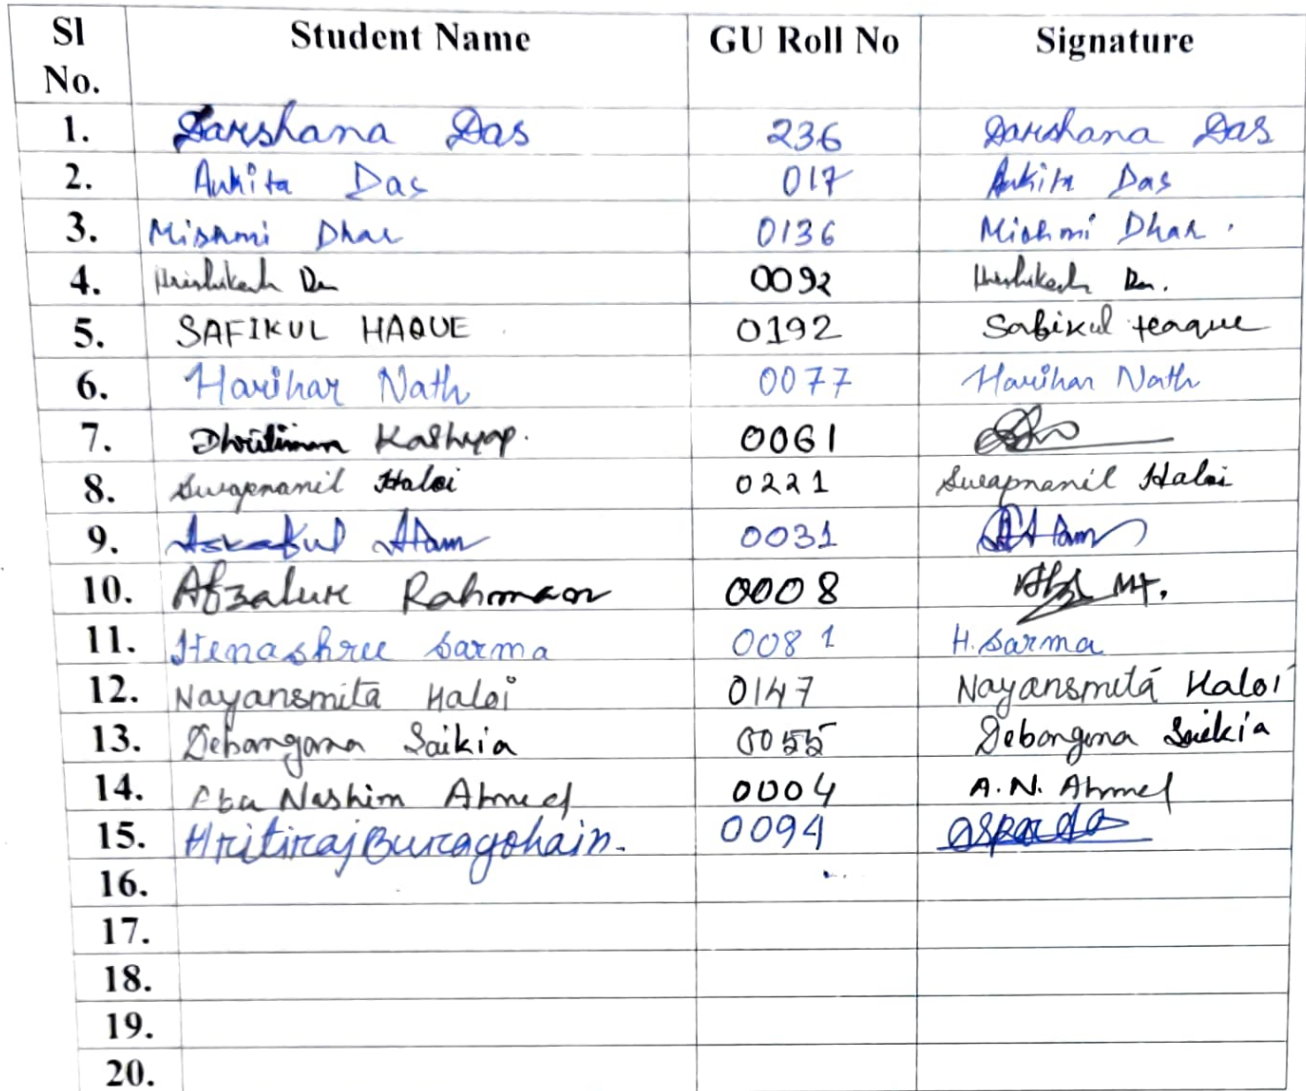 Sl No. Student Name GU Roll No Signature
1. Darshana Das 236 Darshana Das
2. Ankita Das 017 Ankita Das
3. Mishmi Dhar 0136 Mishmi Dhar.
4. Hrishikesh 0092 Hrishikesh
5. SAFIKUL HAQUE 0192 Safikul Haque
6. Harihar Nath 0077 Harihar Nath
7. Dhritiman Kashyap. 0061
8. Swapnanil Haloi 0221 Swapnanil Haloi
9. Alam 0031 Alam
10. Afzalur Rahman 0008
11. Henashree Sarma 0081 H. Sarma
12. Nayansmita Haloi 0147 Nayansmita Haloi
13. Debangana Saikia 0055 Debangana Saikia
14. Nashim Ahmed 0004 A.N. Ahmed
15. Hritiraj Buragohain. 0094
16.
17.
18.
19.
20.